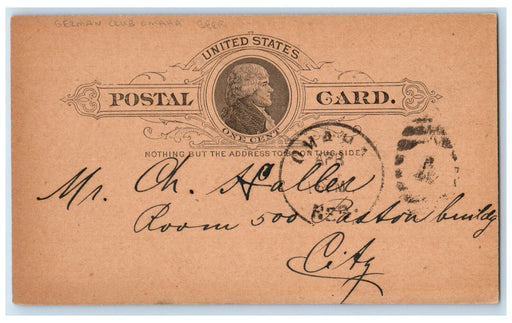 GERMAN CLUB OMAHA
UNITED STATES
POSTAL CARD.
ONE CENT
NOTHING BUT THE ADDRESS TO BE ON THIS SIDE.
OMAHA
NEB
Mr. Ch.
Room 500 Paxton building
City